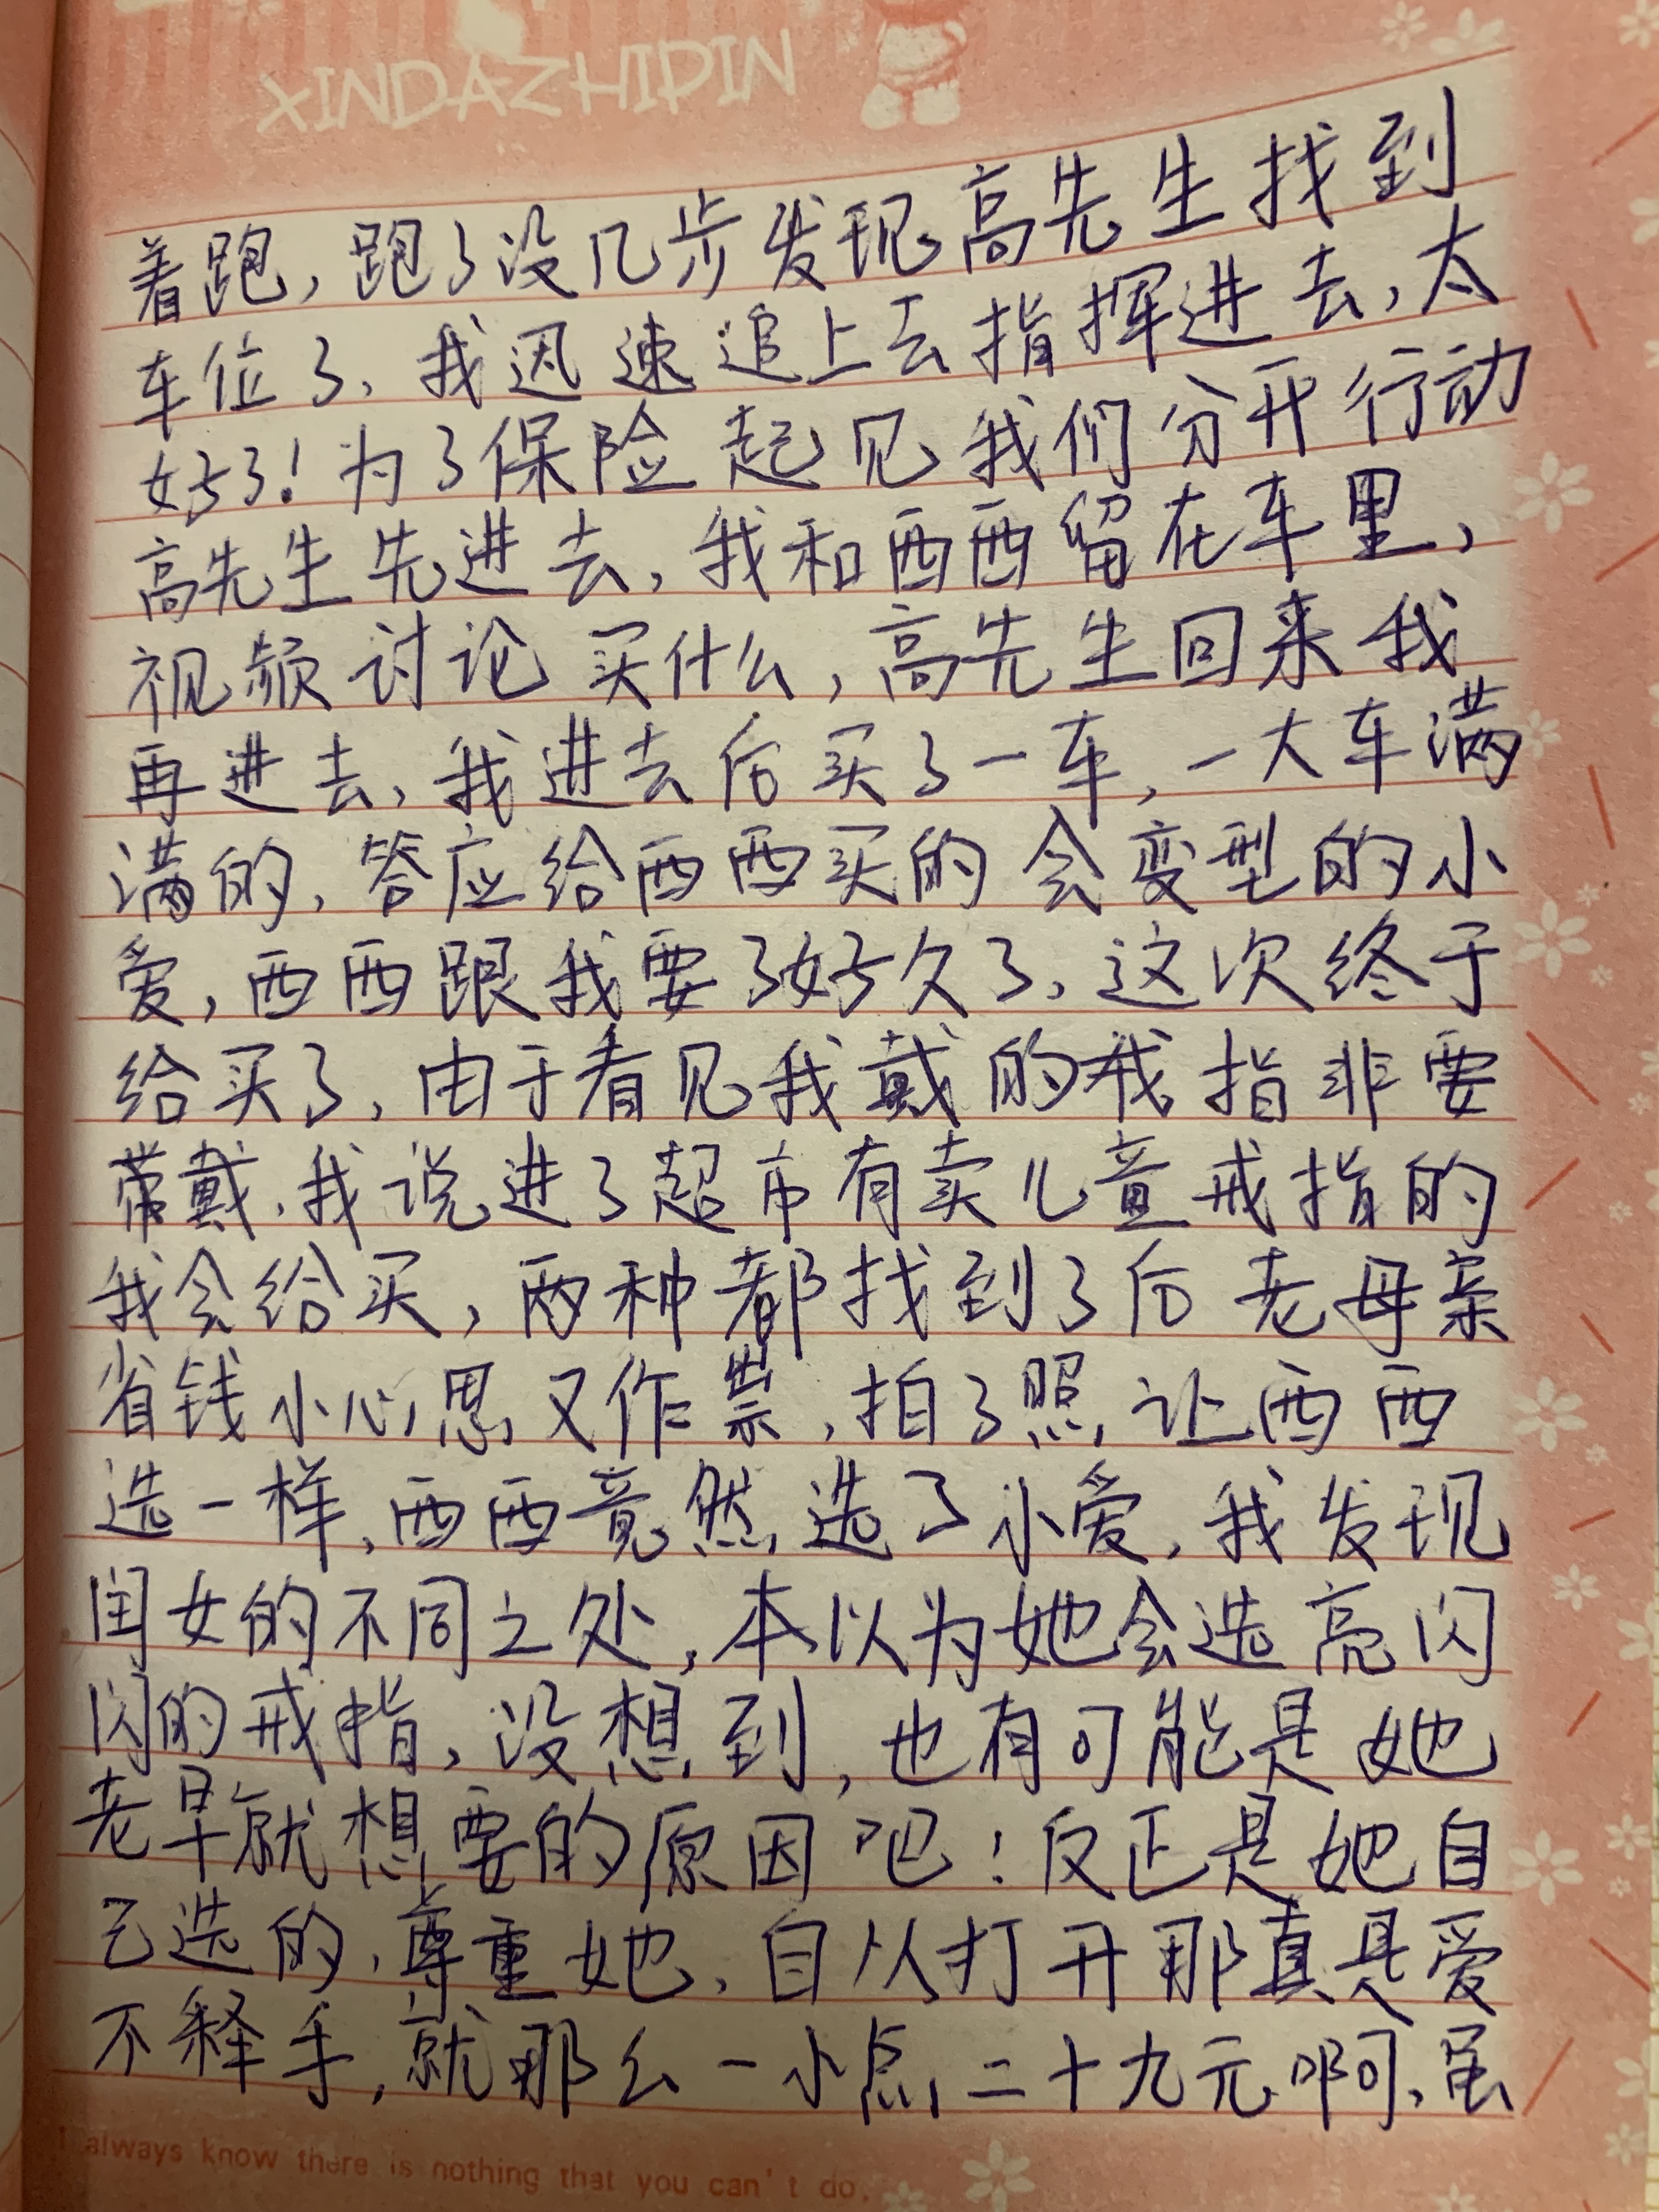 XINDAZHIPIN
着跑，跑了没几步发现高先生找到
车位了，我迅速追上去指挥进去，太
好了！为了保险起见我们分开行动
高先生先进去，我和西西留在车里，
视频讨论买什么，高先生回来我
再进去，我进去后买了一车，一大车满
满的，答应给西西买的会变型的小
爱，西西跟我要了好久了，这次终于
给买了，由于看见我戴的戒指非要
带戴，我说进了超市有卖儿童戒指的
我会给买，两种都找到了后老母亲
省钱小心思又作祟，拍了照让西西
选一样，西西竟然选了小爱，我发现
闺女的不同之处，本以为她会选亮闪
闪的戒指，没想到，也有可能是她
老早就想要的原因吧！反正是她自
己选的，尊重她，自从打开那真是爱
不释手，就那么一小点二十九元啊，虽
I always know there is nothing that you can't do.